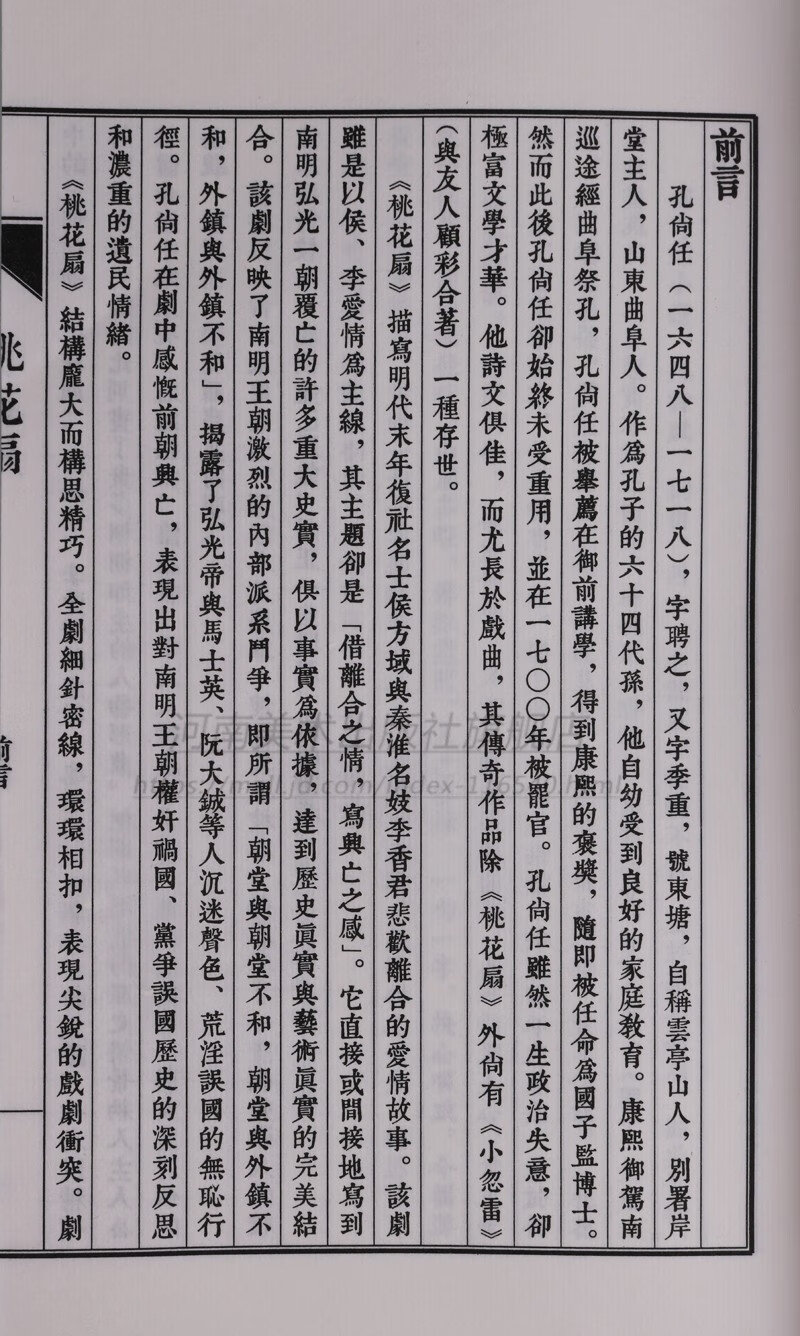 前言
孔尙任（一六四八—一七一八），字聘之，又字季重，號東塘，自稱雲亭山人，別署岸
堂主人，山東曲阜人。作爲孔子的六十四代孫，他自幼受到良好的家庭敎育。康熙御駕南
巡途經曲阜祭孔，孔尙任被舉薦在御前講學，得到康熙的褒獎，隨即被任命爲國子監博士。
然而此後孔尙任卻始終未受重用，並在一七〇〇年被罷官。孔尙任雖然一生政治失意，卻
極富文學才華。他詩文俱佳，而尤長於戲曲，其傳奇作品除《桃花扇》外尙有《小忽雷》
（與友人顧彩合著）一種存世。
《桃花扇》描寫明代末年復社名士侯方域與秦淮名妓李香君悲歡離合的愛情故事。該劇
雖是以侯、李愛情爲主線，其主題卻是「借離合之情，寫興亡之感」。它直接或間接地寫到
南明弘光一朝覆亡的許多重大史實，俱以事實爲依據，達到歷史眞實與藝術眞實的完美結
合。該劇反映了南明王朝激烈的內部派系鬥爭，即所謂「朝堂與朝堂不和，朝堂與外鎮不
和，外鎮與外鎮不和」，揭露了弘光帝與馬士英、阮大鋮等人沉迷聲色、荒淫誤國的無恥行
徑。孔尙任在劇中感慨前朝興亡，表現出對南明王朝權奸禍國、黨爭誤國歷史的深刻反思
和濃重的遺民情緒。
《桃花扇》結構龐大而構思精巧。全劇細針密線，環環相扣，表現尖銳的戲劇衝突。劇
桃花扇
前言